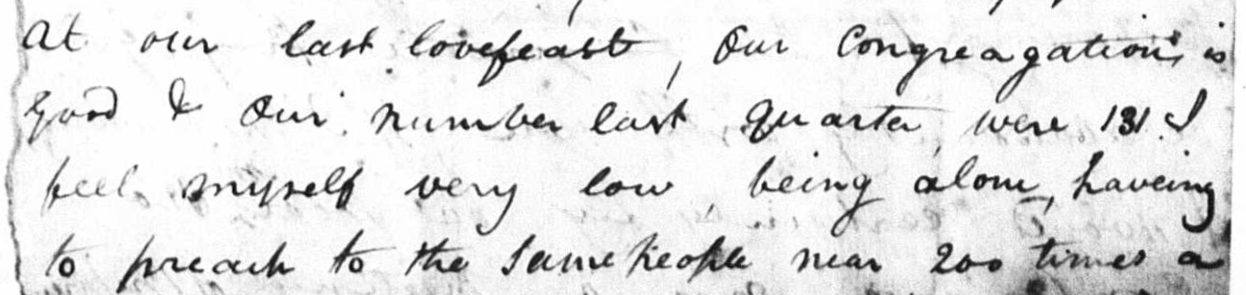 at our last lovefeast, our Congreagation is
good & our number last quarter were 131 I
feel myself very low, being alone, haveing
to preach to the same people near 200 times a